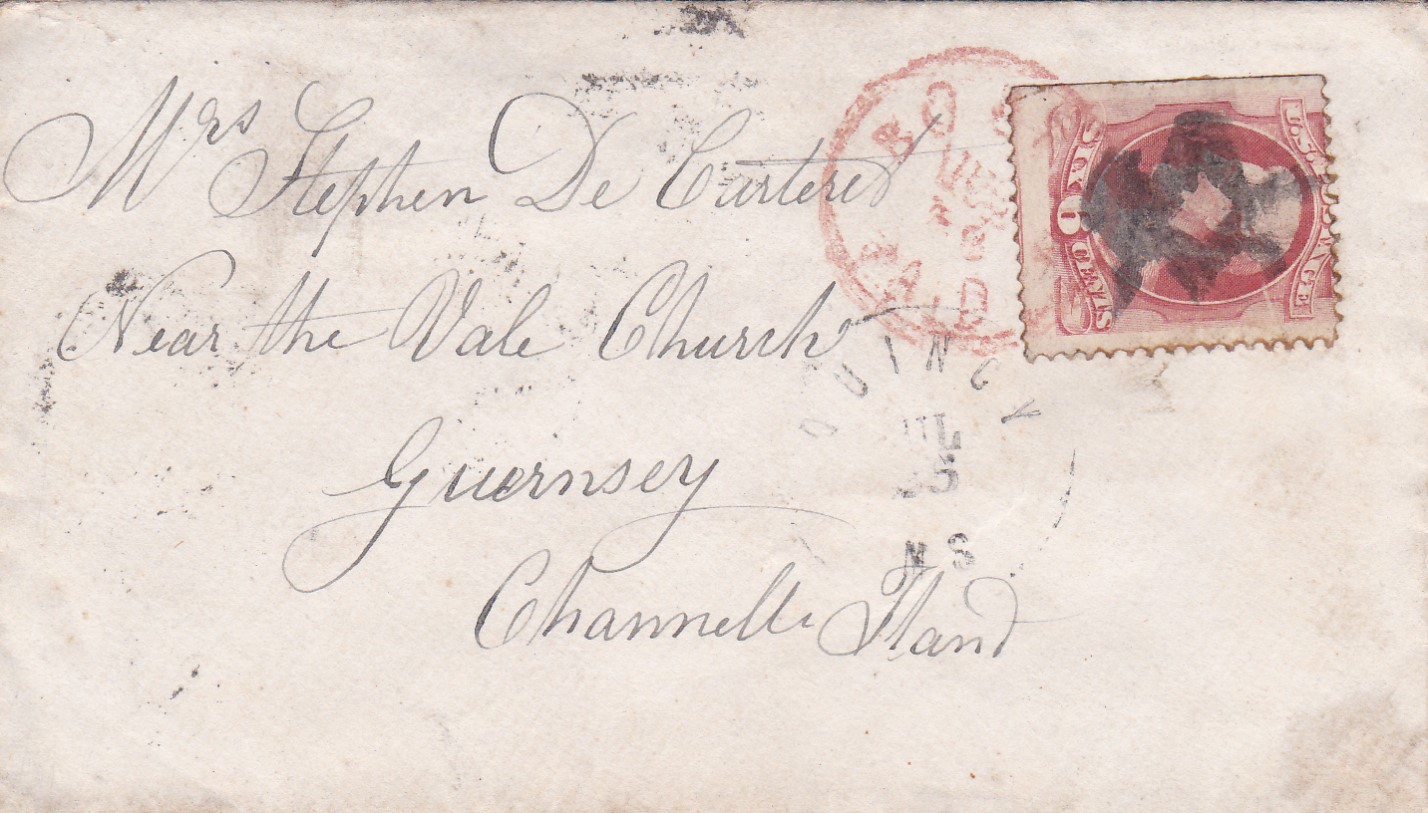 Mrs Stephen De Carteret
Near the Vale Church
Guernsey
Channell Iland
BO
PAID
U.S. POSTAGE
SIX 6 CENTS
QUINCY